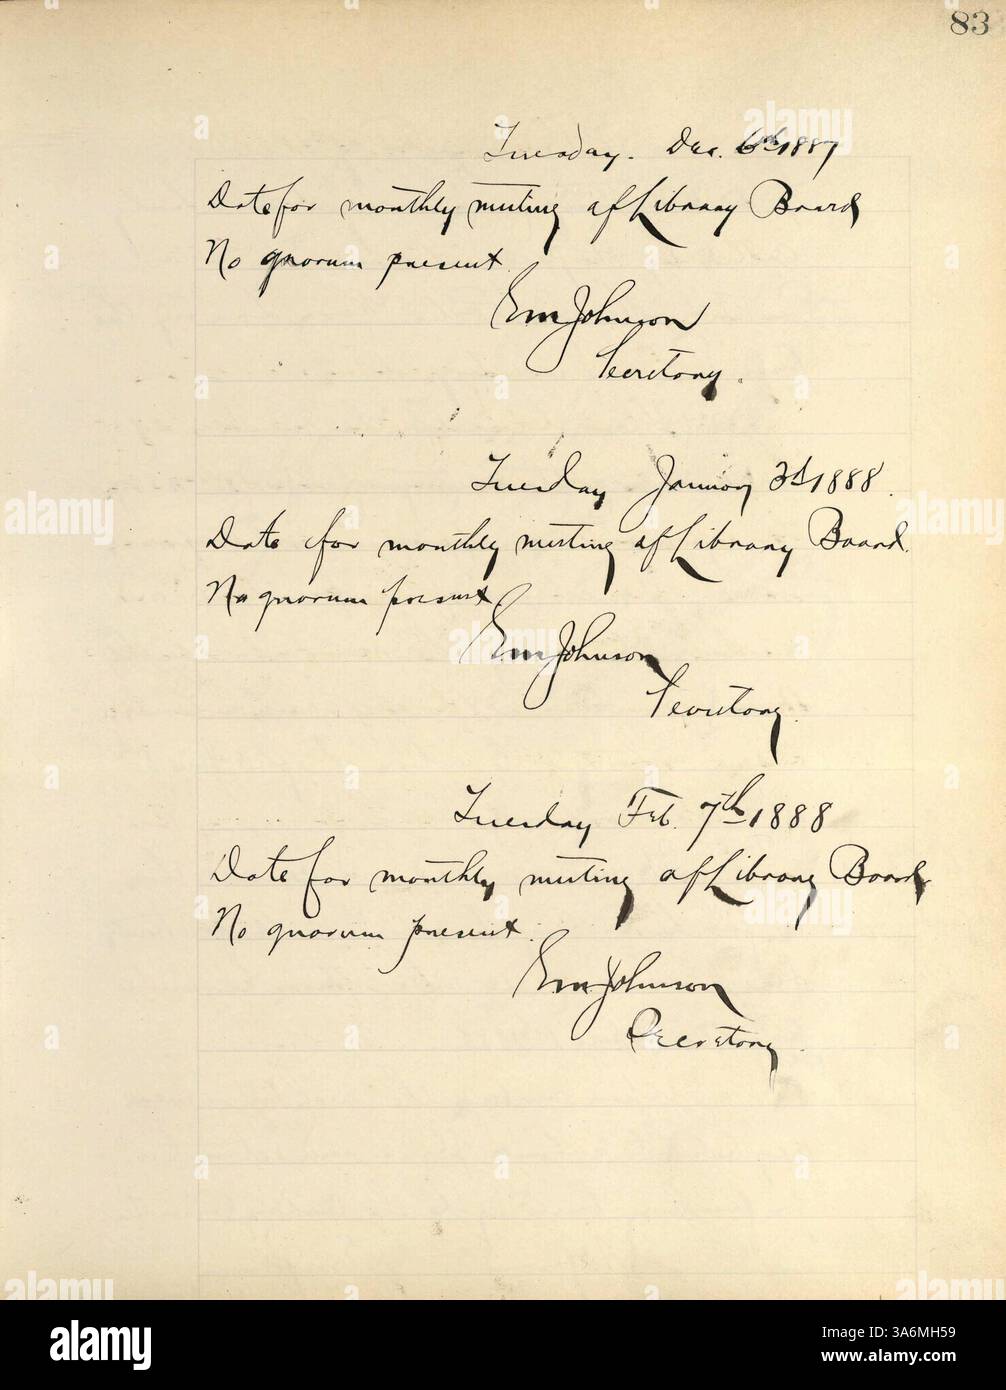 83
Tuesday. Dec. 6th 1887
Date for monthly meeting of Library Board
No quorum present
Em Johnson
Secretary.
Tuesday January 3d 1888.
Date for monthly meeting of Library Board.
No quorum present.
Em Johnson
Secretary.
Tuesday Feb. 7th 1888
Date for monthly meeting of Library Board
No quorum present.
Em. Johnson
Secretary.
alamy
a
alamy
Image ID: 3A6MH59
www.alamy.com